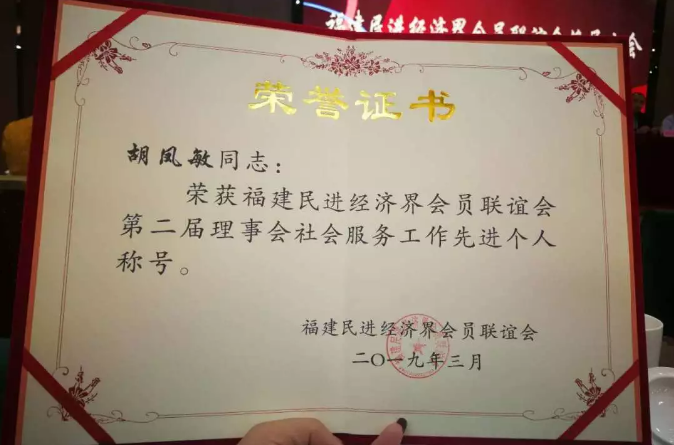 福建民进经济界会员联谊会
荣誉证书
胡凤敏同志：
荣获福建民进经济界会员联谊会
第二届理事会社会服务工作先进个人
称号。
福建民进经济界会员联谊会
二〇一九年三月